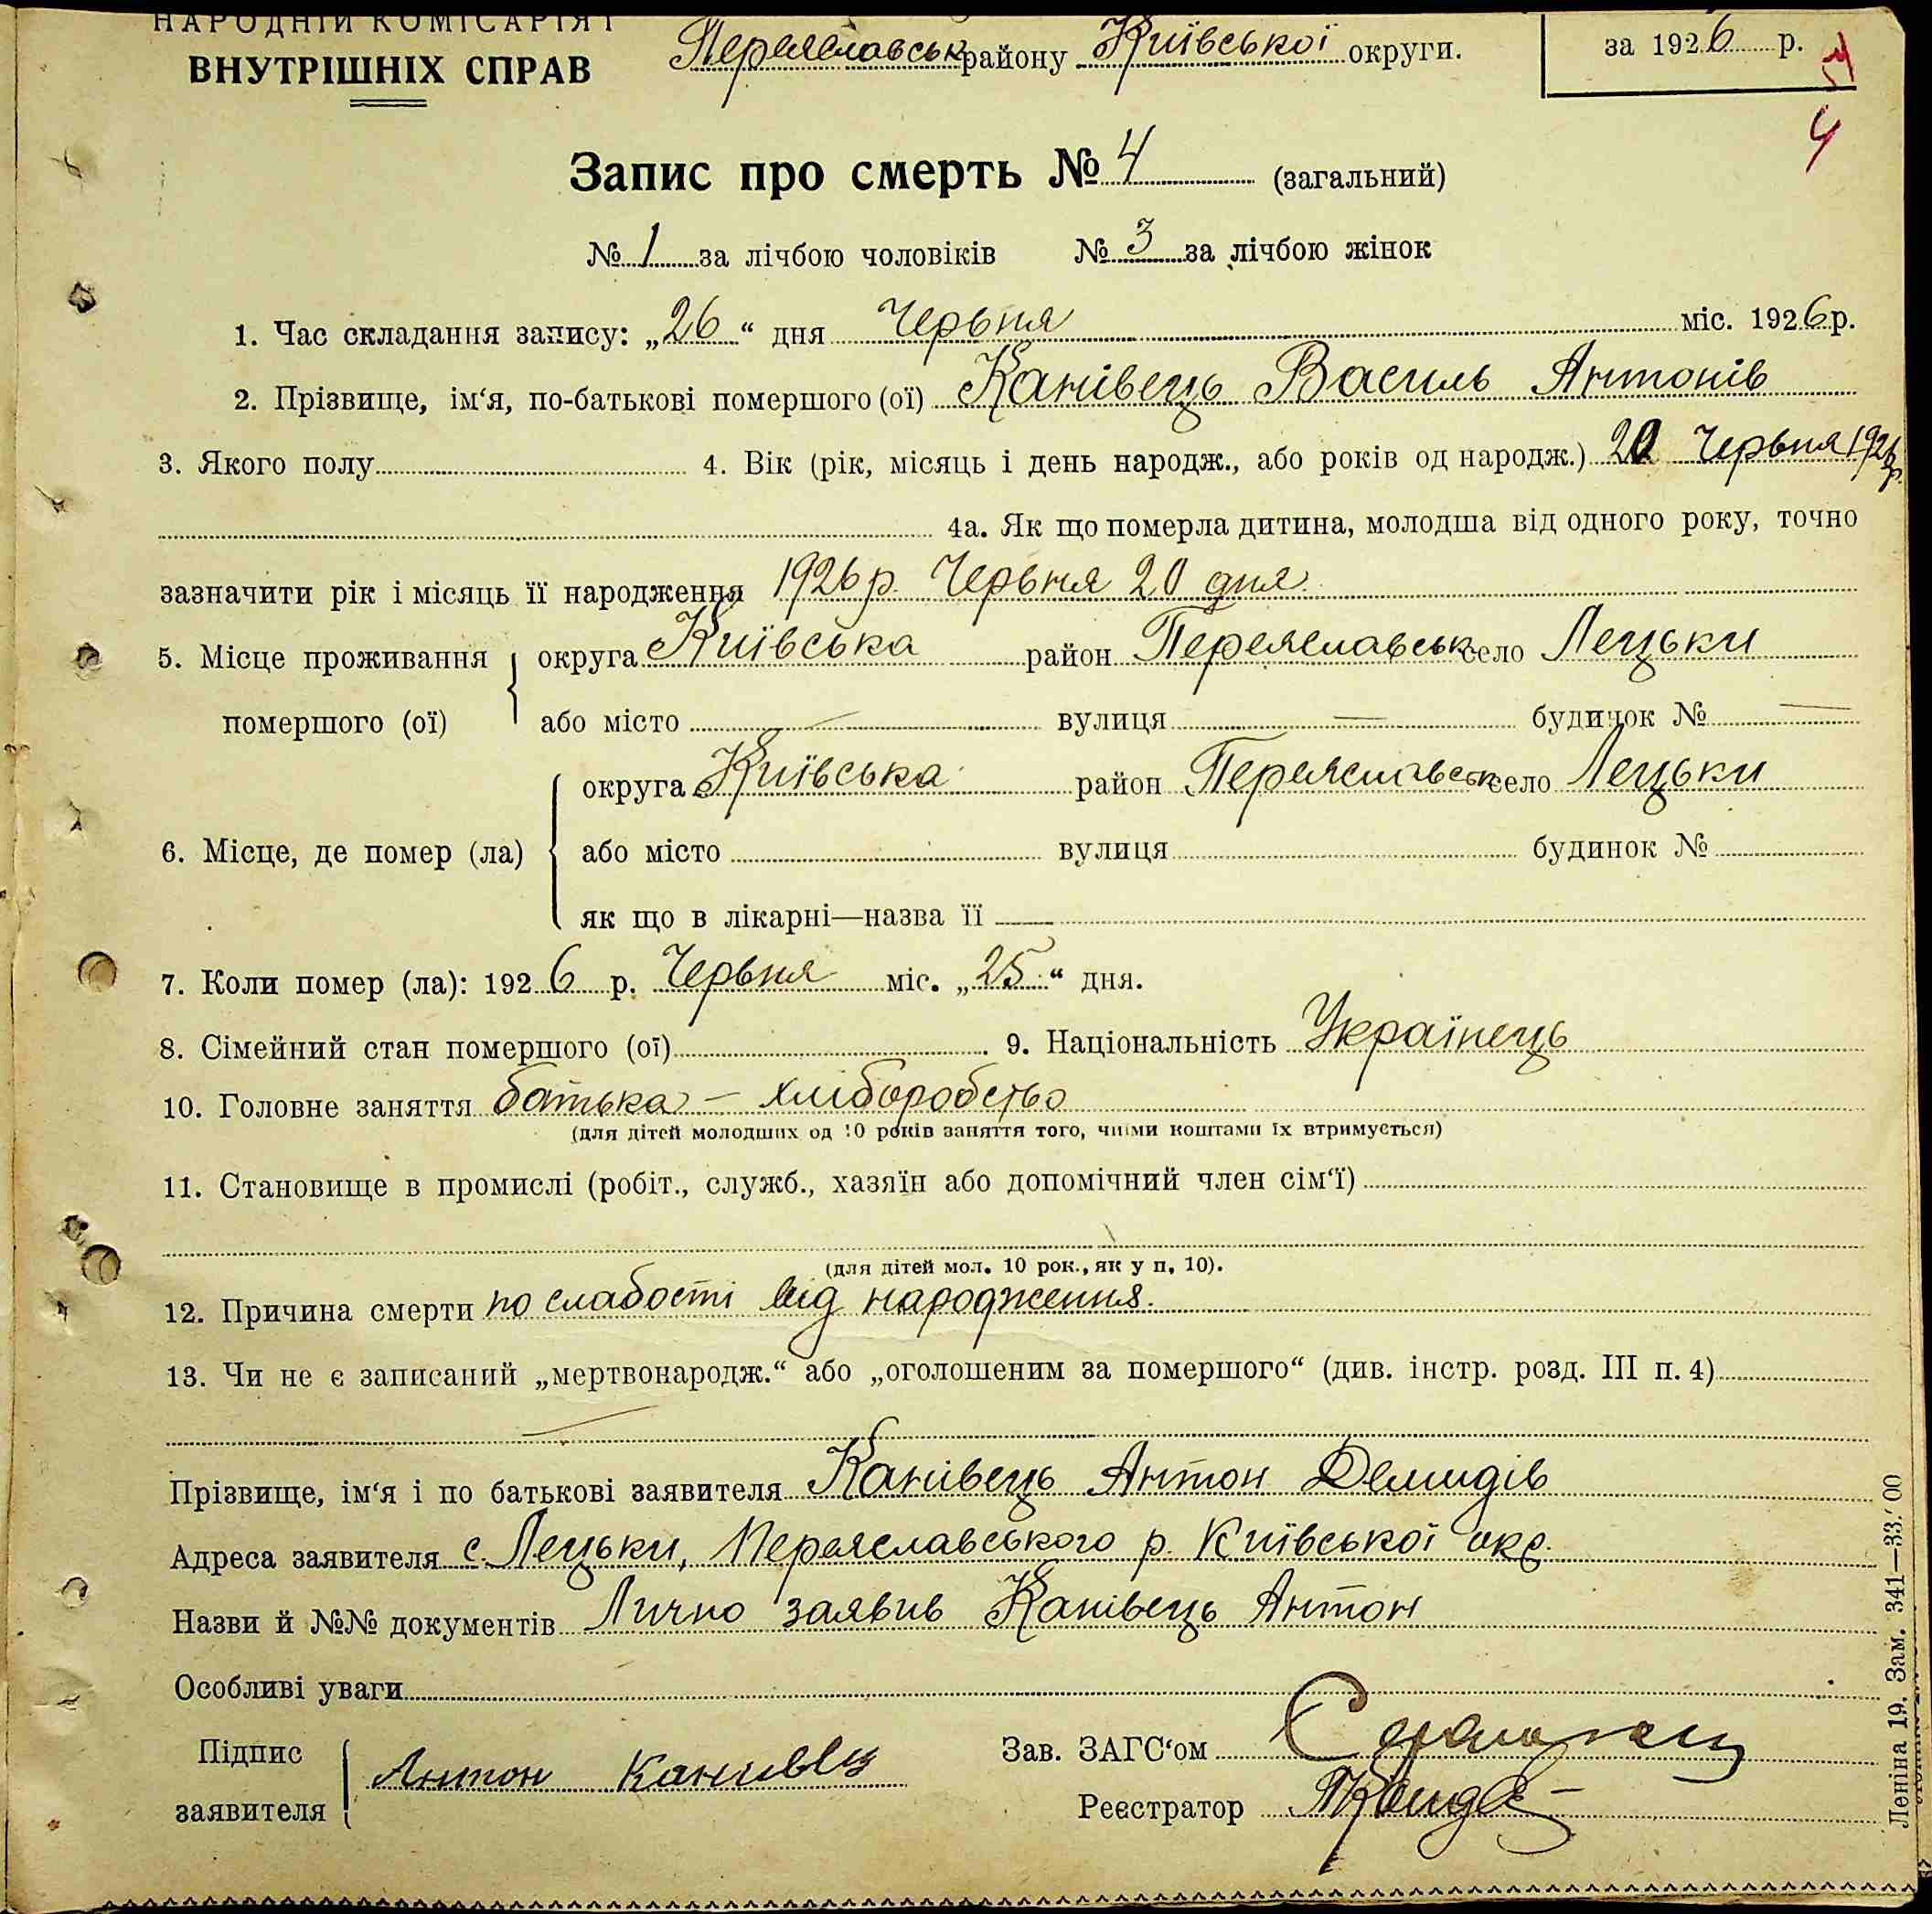 НАРОДНІЙ КОМІСАРІЯТ
ВНУТРІШНІХ СПРАВ
Переяславськ району Київської округи.
за 1926 р.
4
Запис про смерть № 4 (загальний)
№ 1 за лічбою чоловіків № 3 за лічбою жінок
1. Час складання запису: „26“ дня Червня міс. 1926 р.
2. Прізвище, ім‘я, по-батькові помершого (ої) Канівець Василь Антонів
3. Якого полу 4. Вік (рік, місяць і день народж., або років од народж.) 20 Червня 1926 р.
4а. Як що померла дитина, молодша від одного року, точно
зазначити рік і місяць її народження 1926 р. Червня 20 дня
5. Місце проживання округа Київська район Переяславськ село Лецьки
помершого (ої) або місто — вулиця — будинок № —
округа Київська район Переяславськ село Лецьки
6. Місце, де помер (ла) або місто вулиця будинок №
як що в лікарні—назва її —
7. Коли помер (ла): 1926 р. Червня міс. „25“ дня.
8. Сімейний стан помершого (ої) 9. Національність Українець
10. Головне заняття батька – хліборобство
(для дітей молодших од 10 років заняття того, чиїми коштами їх втримується)
11. Становище в промислі (робіт., служб., хазяїн або допомічний член сім‘ї)
(для дітей мол. 10 рок., як у п. 10).
12. Причина смерти по слабості від народження.
13. Чи не є записаний „мертвонародж.“ або „оголошеним за помершого“ (див. інстр. розд. III п. 4)
—
Прізвище, ім‘я і по батькові заявителя Канівець Антон Демидів
Адреса заявителя с. Лецьки, Переяславського р. Київської окр.
Назви й №№ документів Лично заявив Канівець Антон
Особливі уваги
Підпис
заявителя Антон Канивец
Зав. ЗАГС‘ом
Реєстратор
Леніна 19. Зам. 341—33.